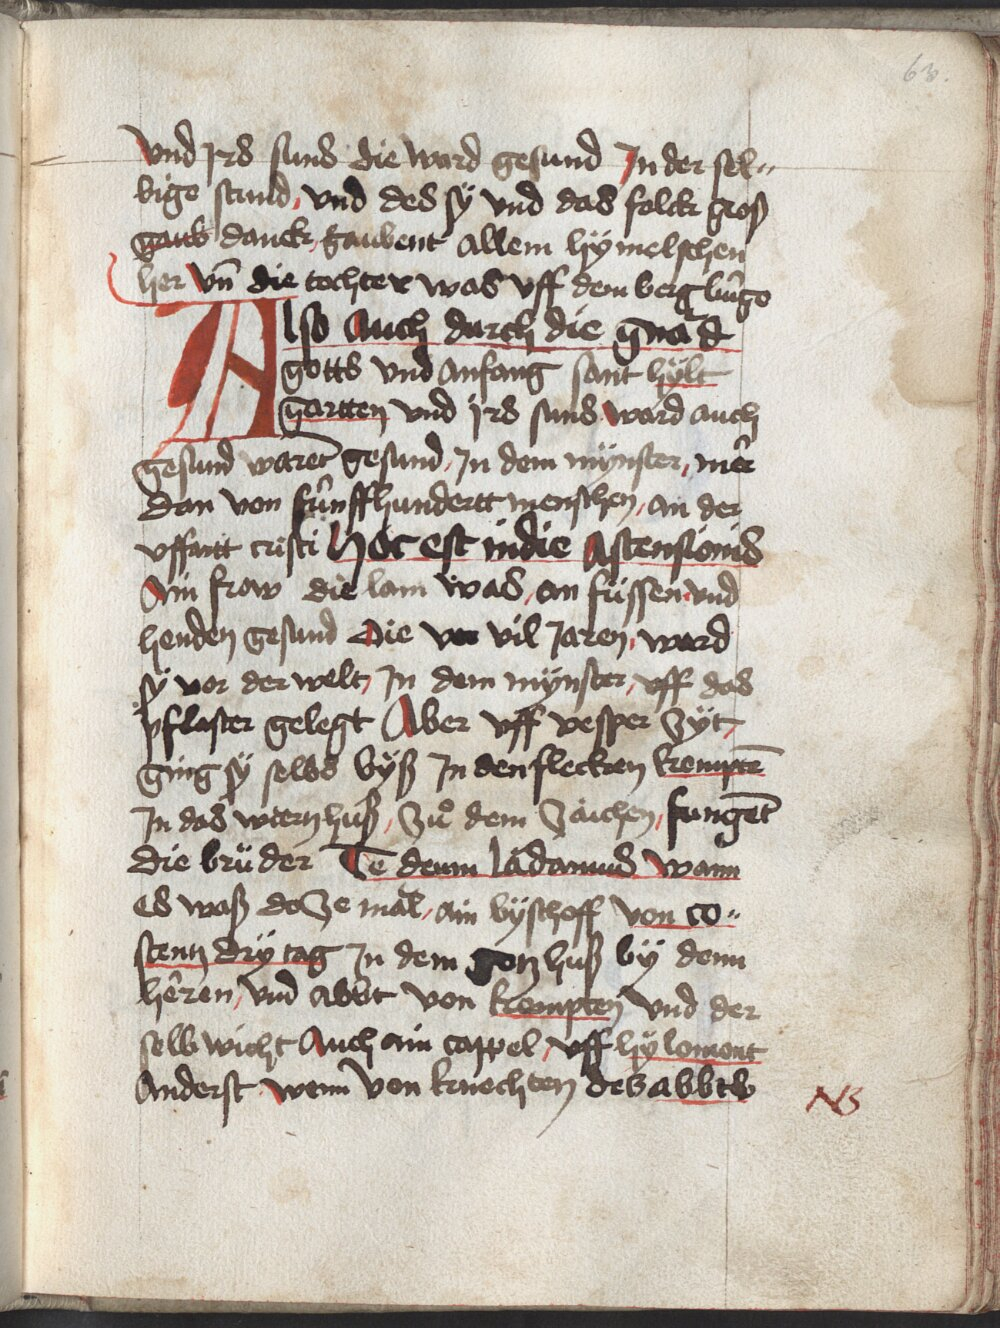 63.
vnd irs suns die ward gesund In der sel„
bige stund, vnd des sÿ vnd das folck gros
gaub danck, gaubent allem hÿmelschen
her vn̄ die tochter was vff dem berg
Also Auch durch die gnad
gotts vnd anfang sant hÿlt
gartten vnd irs suns ward auch
gesund waret gesund, In dem mÿnster, mer
dan von fünffhundertt menschen, an der
vffartt cristi hoc est in die Ascensionis
Ain frow die lam was, an füssen vnd
henden gesund Die vil Jaren, ward
sÿ vor der welt, In dem mÿnster, vff das
pflaster gelegt Aber vff vesper zÿt,
ging sÿ selbs byß In den flecken kempte̅
In das wtern huß, zů dem zaichen, sunget̅
die brüder Te deum ladamus wann
es waß do ze mal, ain bÿschoff von co„
stentz drÿ tag In dem gotz huß bÿ dem
heren, vnd abbt von kempten vnd der
selb wicht Auch ain cappel, vff hÿlomont
Anderst wenn von knechten des abbts
NB